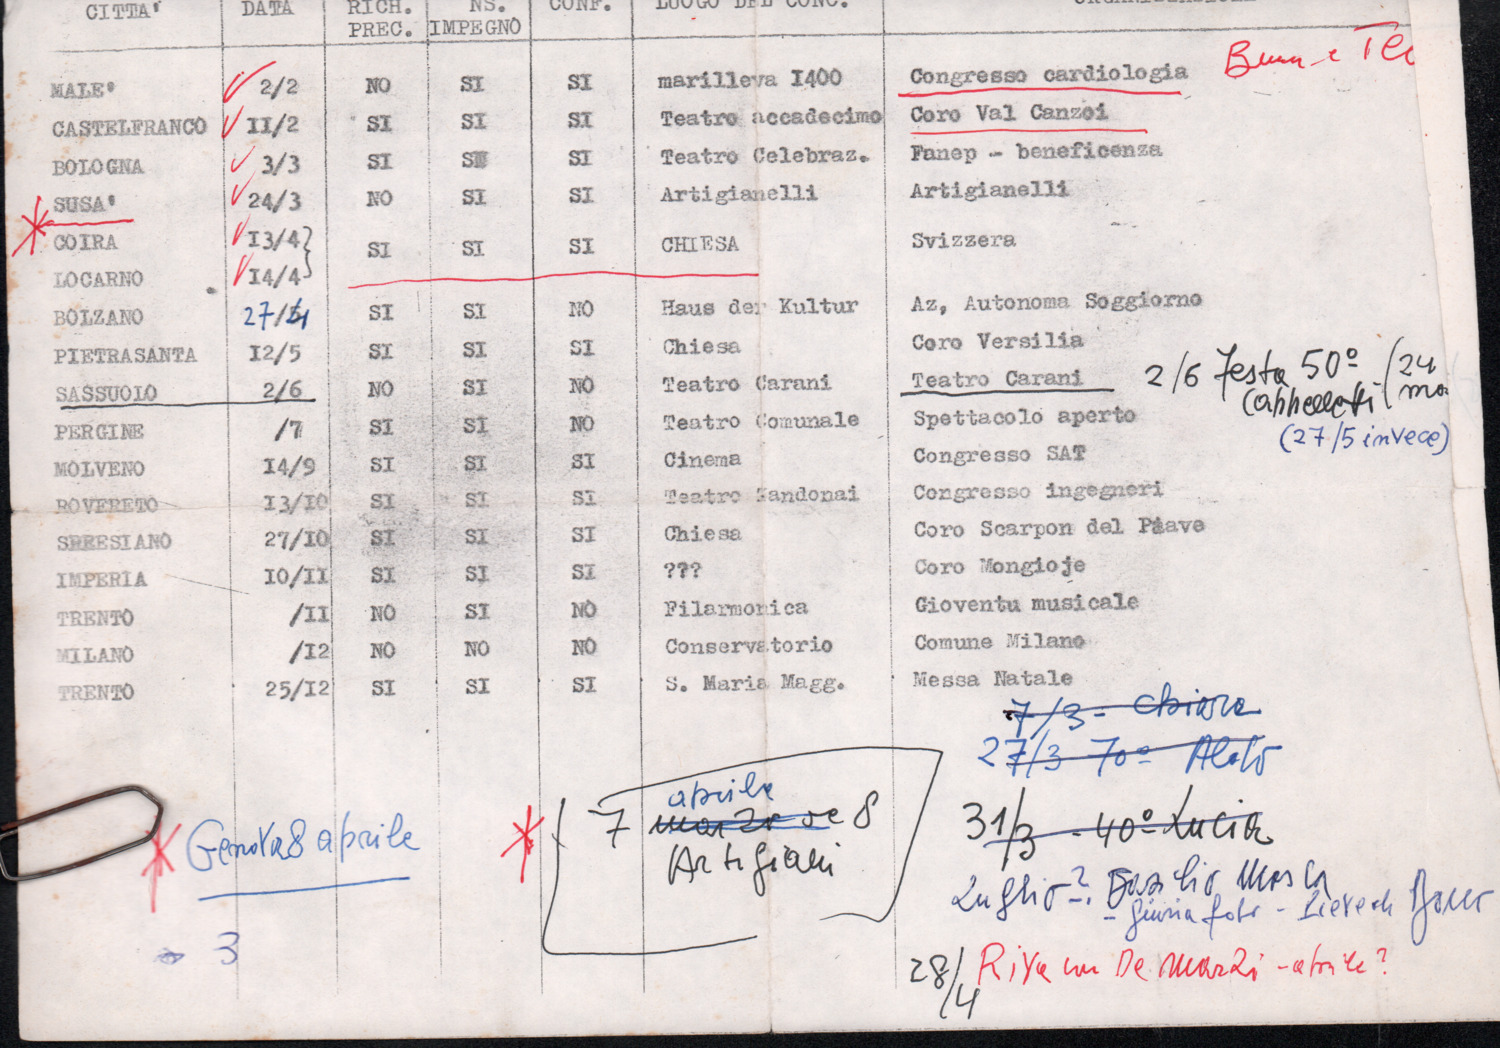 CITTA' DATA RICH. PREC. NS. IMPEGNO CONF. LUOGO DEL CONC.
MALE' 2/2 NO SI SI marilleva I400 Congresso cardiologia
CASTELFRANCO II/2 SI SI SI Teatro accadecimo Coro Val Canzoi
BOLOGNA 3/3 SI SI SI Teatro Celebraz. Fanep - beneficenza
SUSA' 24/3 NO SI SI Artigianelli Artigianelli
COIRA I3/4 SI SI SI CHIESA Svizzera
LOCARNO I4/4
BOLZANO 27/4 SI SI NO Haus der Kultur Az, Autonoma Soggiorno
PIETRASANTA I2/5 SI SI SI Chiesa Coro Versilia
SASSUOLO 2/6 NO SI NO Teatro Carani Teatro Carani 2/6 Festa 50º Cappelletti (24
(27/5 invece)
PERGINE /7 SI SI NO Teatro Comunale Spettacolo aperto
MOLVENO I4/9 SI SI SI Cinema Congresso SAT
ROVERETO I3/IO SI SI SI Teatro Zandonai Congresso ingegneri
SRRESIANO 27/IO SI SI SI Chiesa Coro Scarpon del Piave
IMPERIA IO/II SI SI SI ??? Coro Mongioje
TRENTO /II NO SI NO Filarmonica Gioventu musicale
MILANO /I2 NO NO NO Conservatorio Comune Milano
TRENTO 25/I2 SI SI SI S. Maria Magg. Messa Natale
7/3 - Chiara
27/3 70º Aldo
31/3 - 40º Lucia
Genova 8 aprile
3
aprile
7 marzo ore 8
Artigiani
Luglio?
28/4 Riva con De Marzi - aprile?